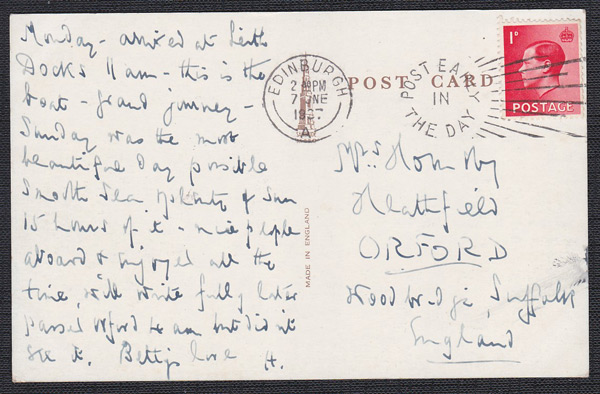 Monday - arrived at Leith
Docks 11 am - this is the
boat - grand journey -
Sunday was the most
beautiful day possible
Smooth Sea & plenty of Sun
15 hours of it - nice people
aboard & enjoyed all the
time, will write fully later
passed Orford 4 am but did n't
see it. Bettys love H.
MADE IN ENGLAND
POST CARD
EDINBURGH
7 JNE
A
POST EARLY
IN
THE DAY
1D
POSTAGE
Mrs Hornby
Heathfield
ORFORD
Woodbridge, Suffolk
England